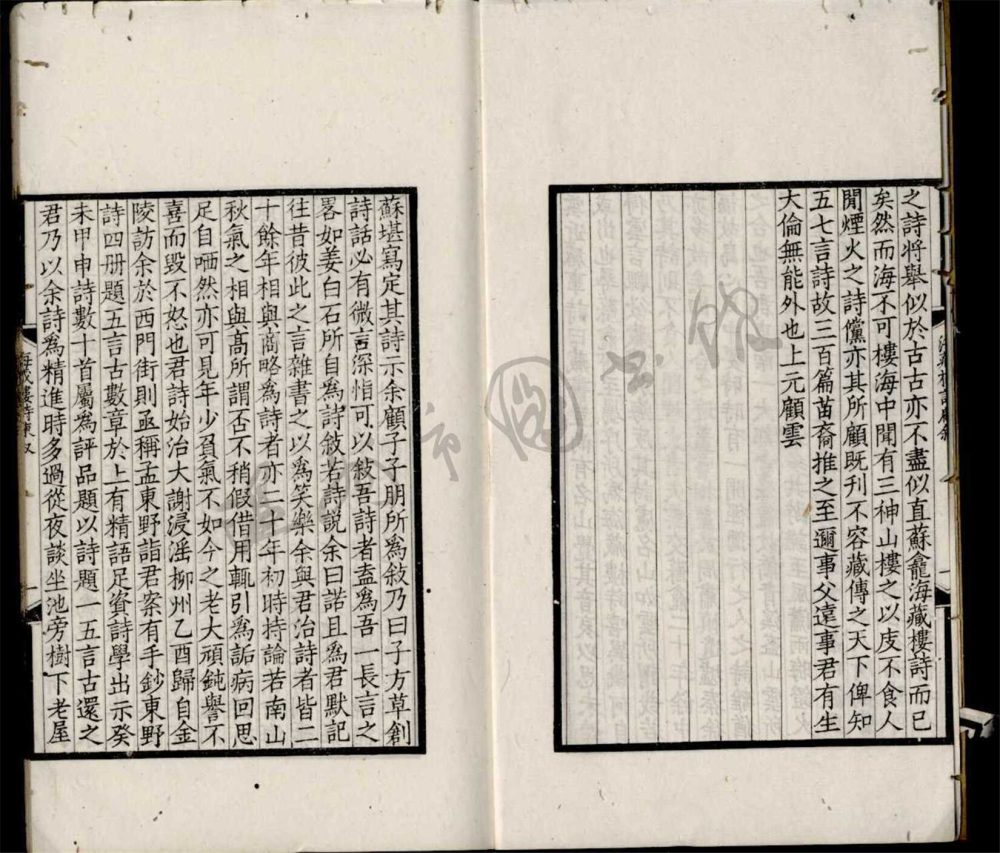 之詩將舉似於古古亦不盡似直蘇龕海藏樓詩而已
矣然而海不可樓海中聞有三神山樓之以庋不食人
閒煙火之詩儻亦其所顧既刊不容藏傳之天下俾知
五七言詩故三百篇苗裔推之至邇事父遠事君有生
大倫無能外也上元顧雲
蘇堪寫定其詩示余顧子子朋所為敍乃曰子方草創
詩話必有微言深恉可以敍吾詩者盍為吾一長言之
畧如姜白石所自為詩敍若詩説余曰諾且為君默記
往昔彼此之言雜書之以為笑樂余與君治詩者皆二
十餘年相與商略為詩者亦二十年初時持論若南山
秋氣之相與高所謂否不稍假借用輒引為詬病回思
足自哂然亦可見年少負氣不如今之老大頑鈍譽不
喜而毀不怒也君詩始治大謝浸淫柳州乙酉歸自金
陵訪余於西門街則亟稱孟東野詣君案有手鈔東野
詩四册題五言古數章於上有精語足資詩學出示癸
未甲申詩數十首屬為評品題以詩題一五言古還之
君乃以余詩為精進時多過從夜談坐池旁樹下老屋